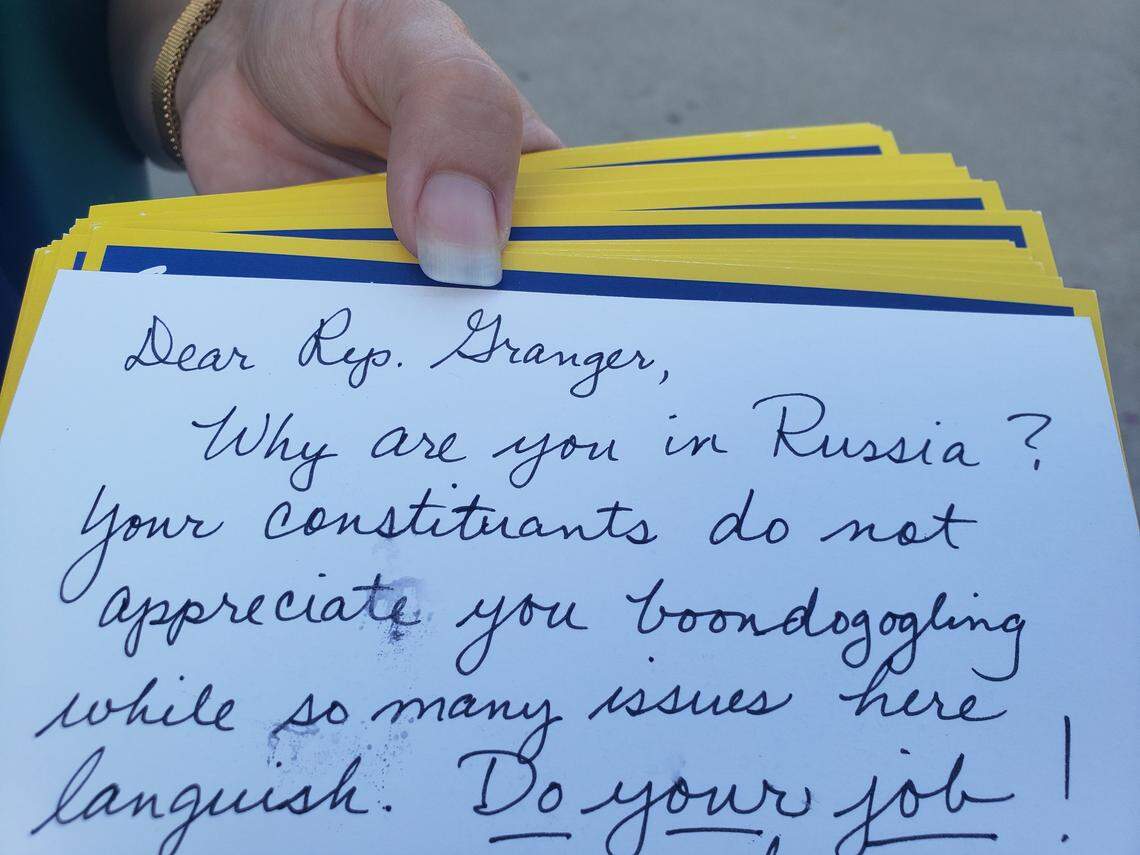 Dear Rep. Granger,
Why are you in Russia?
Your constituants do not
appreciate you boondogogling
while so many issues here
languish. Do your job!